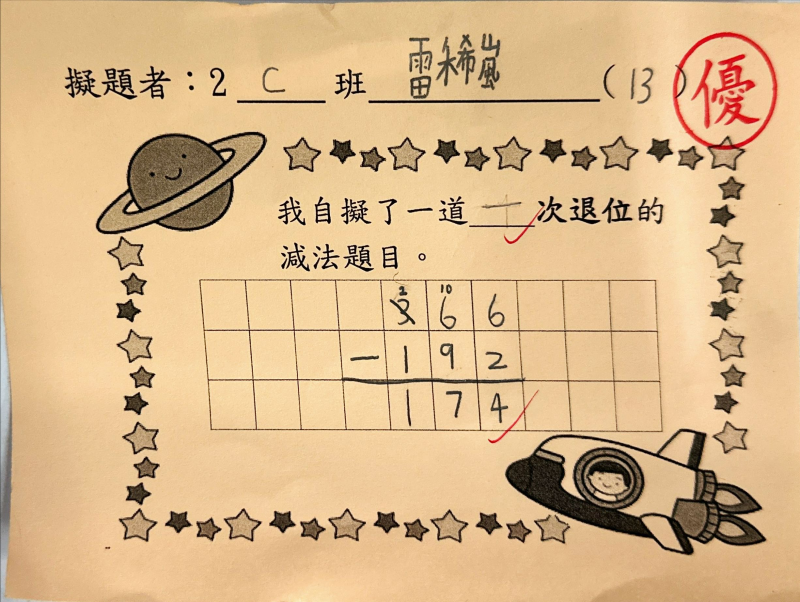 擬題者：2 C 班 雷稀嵐 (13)
優
我自擬了一道十次退位的
減法題目。
2 10
3 6 6
－ 1 9 2
1 7 4